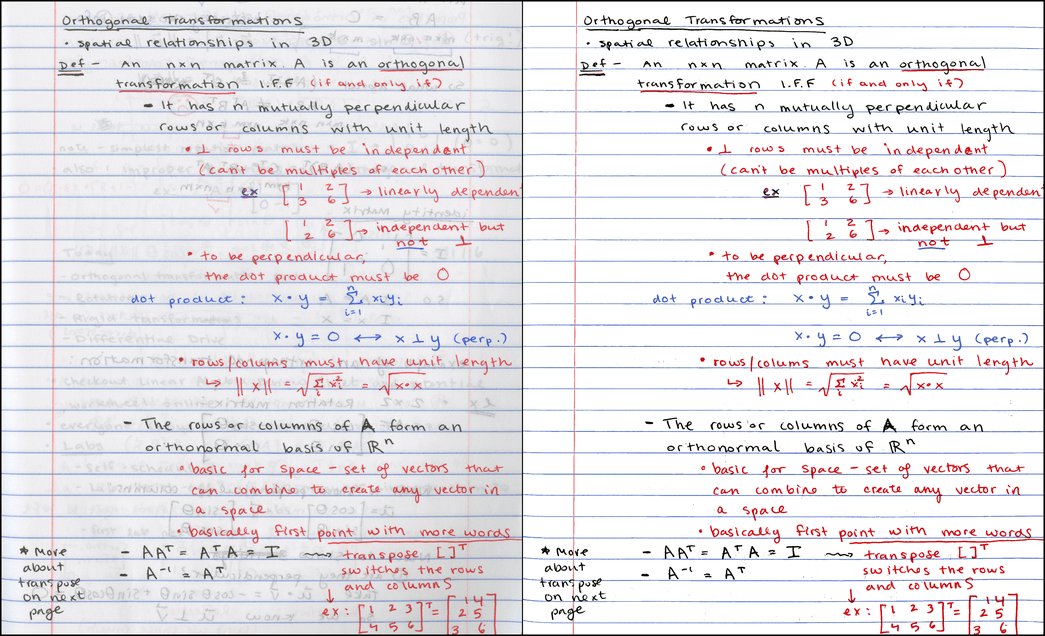 Orthogonal Transformations
• spatial relationships in 3D
Def - An n×n matrix A is an orthogonal
transformation I.F.F (if and only if)
- It has n mutually perpendicular
rows or columns with unit length
• ⊥ rows must be independent
(can't be multiples of each other)
ex [1 2; 3 6] → linearly dependent
[1 2; 2 6] → independent but
not ⊥
• to be perpendicular,
the dot product must be 0
dot product: x • y = Σ_{i=1}^{n} x_i y_i
x • y = 0 ↔ x ⊥ y (perp.)
• rows/colums must have unit length
↳ ||x|| = √(Σ_i x_i^2) = √(x•x)
- The rows or columns of A form an
orthonormal basis of ℝ^n
• basic for space - set of vectors that
can combine to create any vector in
a space
• basically first point with more words
* More about transpose on next page
- AA^T = A^T A = I ⟿ transpose [ ]^T
- A^-1 = A^T switches the rows
and columns
↓
ex: [1 2 3; 4 5 6]^T = [1 4; 2 5; 3 6]
Orthogonal Transformations
• spatial relationships in 3D
Def - An n×n matrix A is an orthogonal
transformation I.F.F (if and only if)
- It has n mutually perpendicular
rows or columns with unit length
• ⊥ rows must be independent
(can't be multiples of each other)
ex [1 2; 3 6] → linearly dependen
[1 2; 2 6] → independent but
not ⊥
• to be perpendicular,
the dot product must be 0
dot product: x • y = Σ_{i=1}^{n} x_i y_i
x • y = 0 ↔ x ⊥ y (perp.)
• rows/colums must have unit length
↳ ||x|| = √(Σ_i x_i^2) = √(x•x)
- The rows or columns of A form an
orthonormal basis of ℝ^n
• basic for space - set of vectors that
can combine to create any vector in
a space
• basically first point with more words
* More about transpose on next page
- AA^T = A^T A = I ⟿ transpose [ ]^T
- A^-1 = A^T switches the rows
and columns
↓
ex: [1 2 3; 4 5 6]^T = [1 4; 2 5; 3 6]